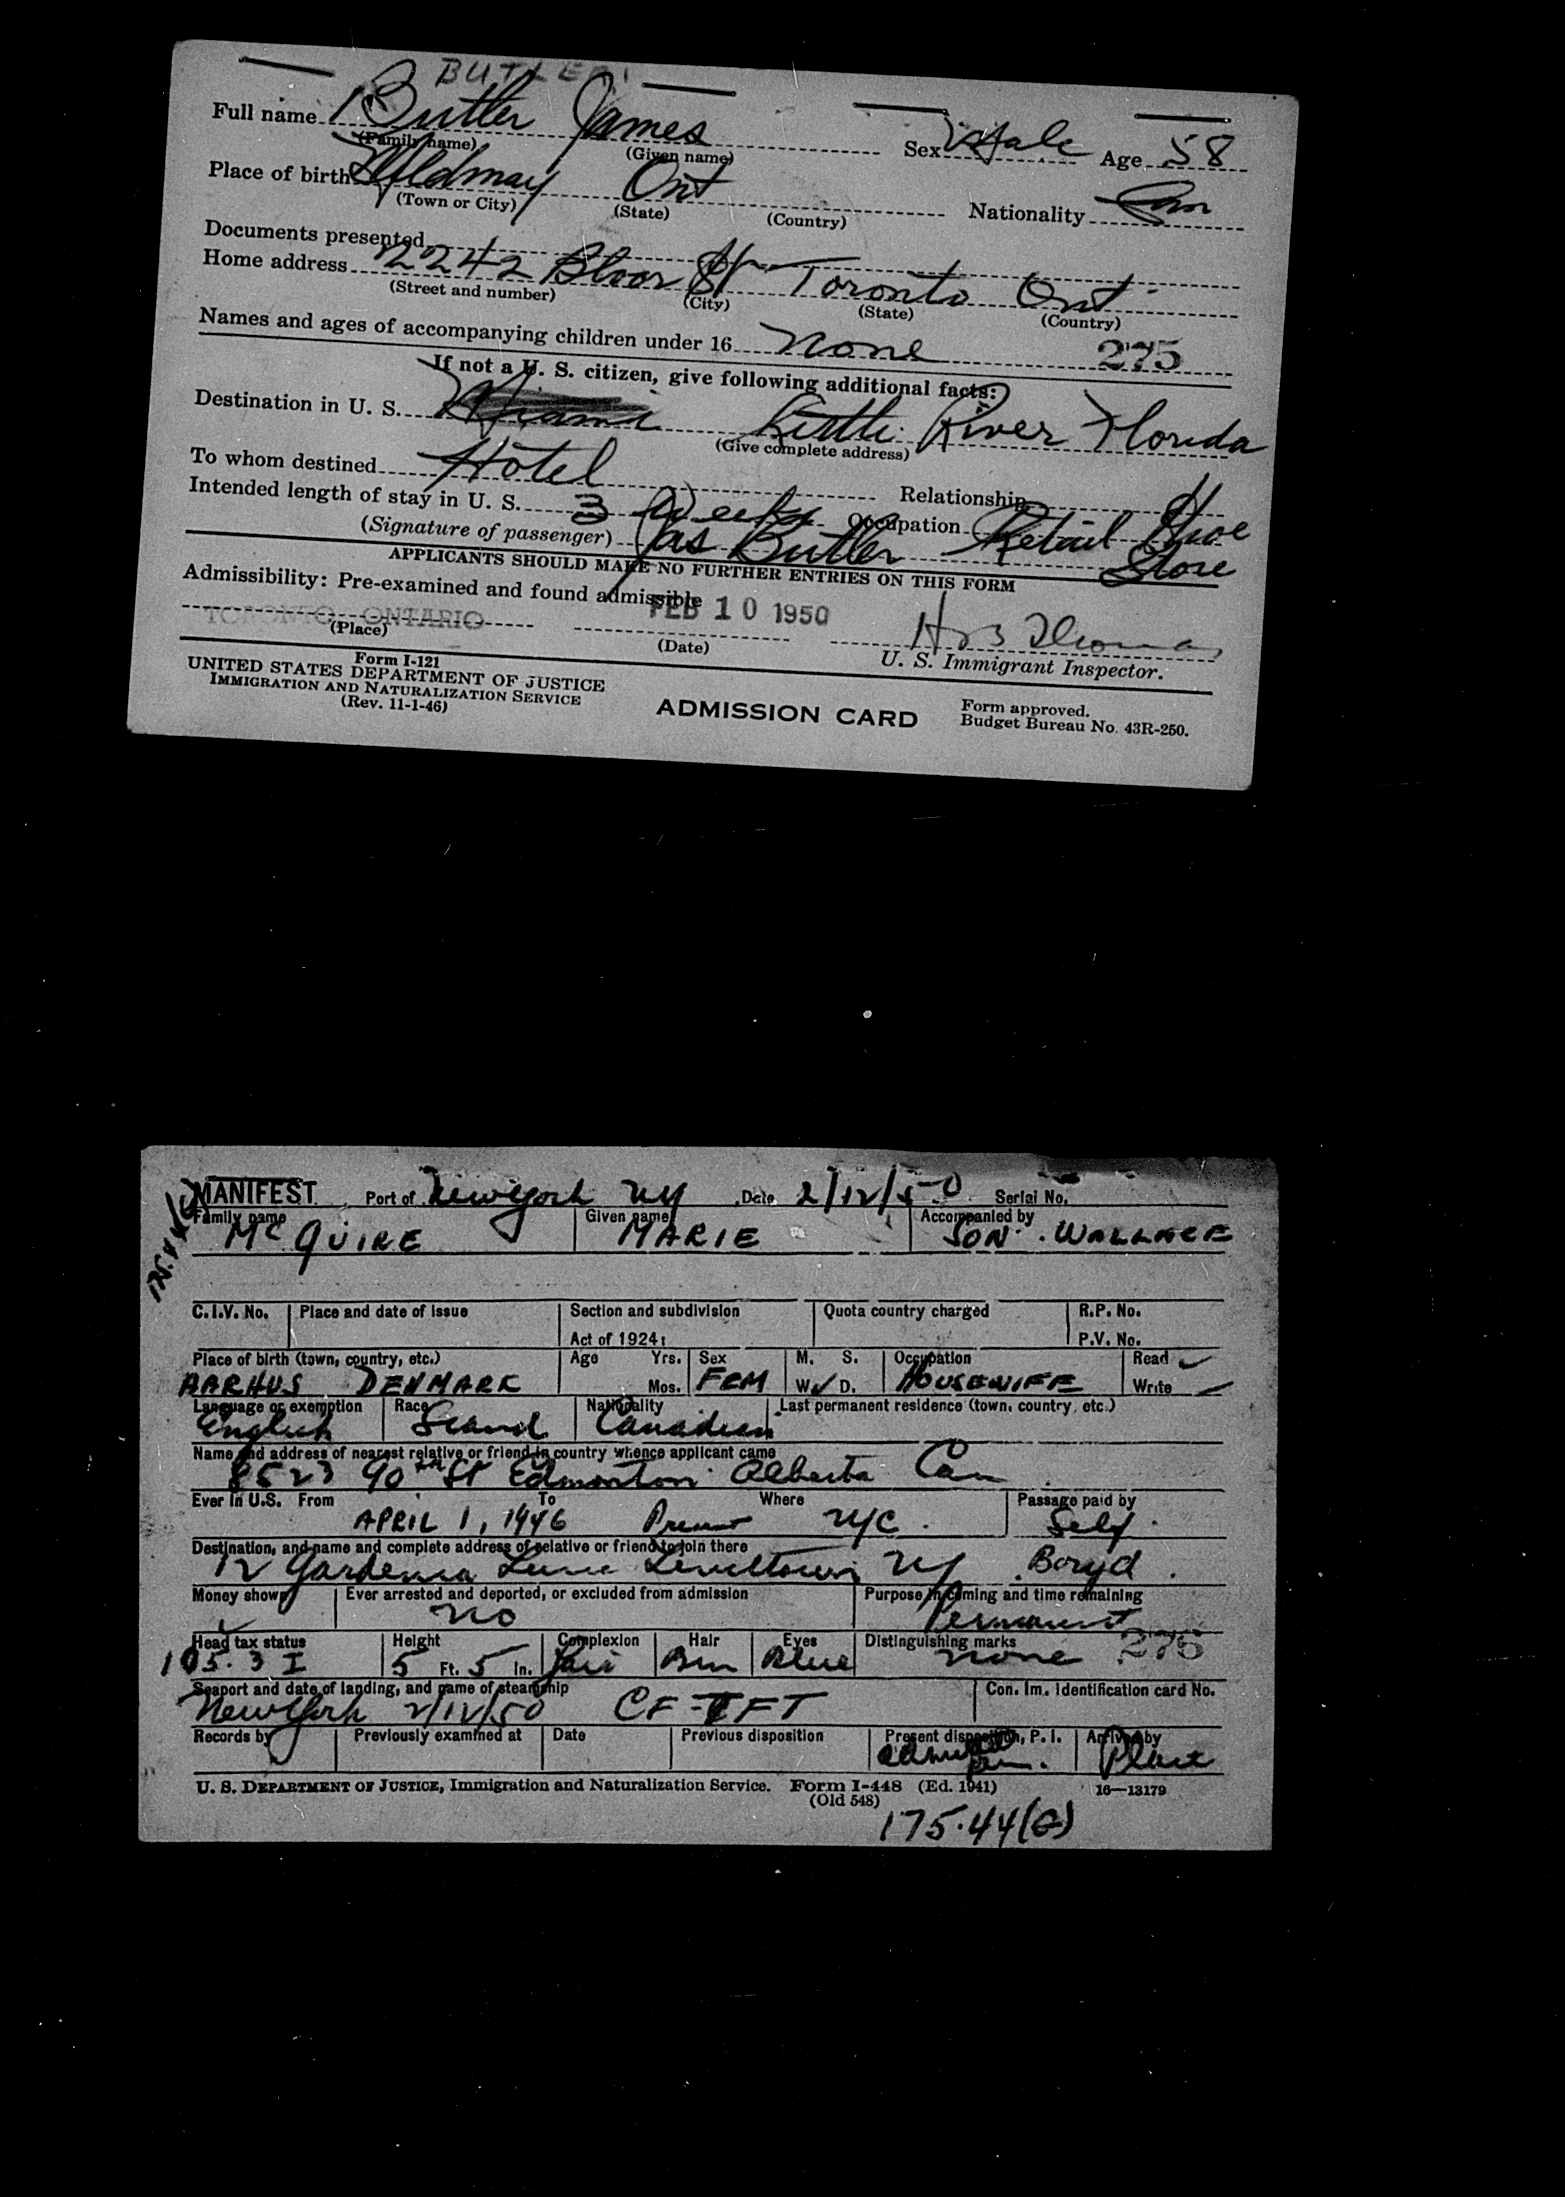 BUTLER
Full name Butler James Sex Male Age 58
(Family name) (Given name)
Place of birth Mildmay Ont Nationality Can
(Town or City) (State) (Country)
Documents presented
Home address 2242 Bloor St W Toronto Ont
(Street and number) (City) (State) (Country)
Names and ages of accompanying children under 16 none 275
If not a U. S. citizen, give following additional facts:
Destination in U. S. Miami Little River Florida
(Give complete address)
To whom destined Hotel Relationship
Intended length of stay in U. S. 3 Weeks Occupation Retail Shoe Store
(Signature of passenger) Jas Butler
APPLICANTS SHOULD MAKE NO FURTHER ENTRIES ON THIS FORM
Admissibility: Pre-examined and found admissible
TORONTO, ONTARIO FEB 10 1950
(Place) (Date) U. S. Immigrant Inspector.
Form I-121
UNITED STATES DEPARTMENT OF JUSTICE
IMMIGRATION AND NATURALIZATION SERVICE
(Rev. 11-1-46)
ADMISSION CARD
Form approved.
Budget Bureau No. 43R-250.
MANIFEST Port of New York NY Date 2/12/50 Serial No.
Family name Given name Accompanied by
McQUIRE MARIE SON WALLACE
C.I.V. No. Place and date of issue Section and subdivision Quota country charged R.P. No.
Act of 1924: P.V. No.
Place of birth (town, country, etc.) Age Yrs. Sex M. S. Occupation Read ✓
AARHUS DENMARK Mos. FEM W. ✓ D. HOUSEWIFE Write ✓
Language or exemption Race Nationality Last permanent residence (town, country, etc.)
English Scand Canadian
Name and address of nearest relative or friend in country whence applicant came
8523 90th St Edmonton Alberta Can
Ever in U.S. From To Where Passage paid by
APRIL 1, 1946 Present NYC Self
Destination, and name and complete address of relative or friend to join there
12 Gardenia Lane Levittown NY
Money shown Ever arrested and deported, or excluded from admission Purpose in coming and time remaining
✓ No Permanent
Head tax status Height Complexion Hair Eyes Distinguishing marks
105.3 I 5 Ft. 5 In. Fair Brn Blue none 275
Seaport and date of landing, and name of steamship Con. Im. Identification card No.
New York 2/12/50 CF-TFT
Records by Previously examined at Date Previous disposition Present disposition, P. I. Arrived by
admitted Plane
U. S. DEPARTMENT OF JUSTICE, Immigration and Naturalization Service. Form I-448 (Ed. 1941) 16—13179
(Old 548)
175.44(G)